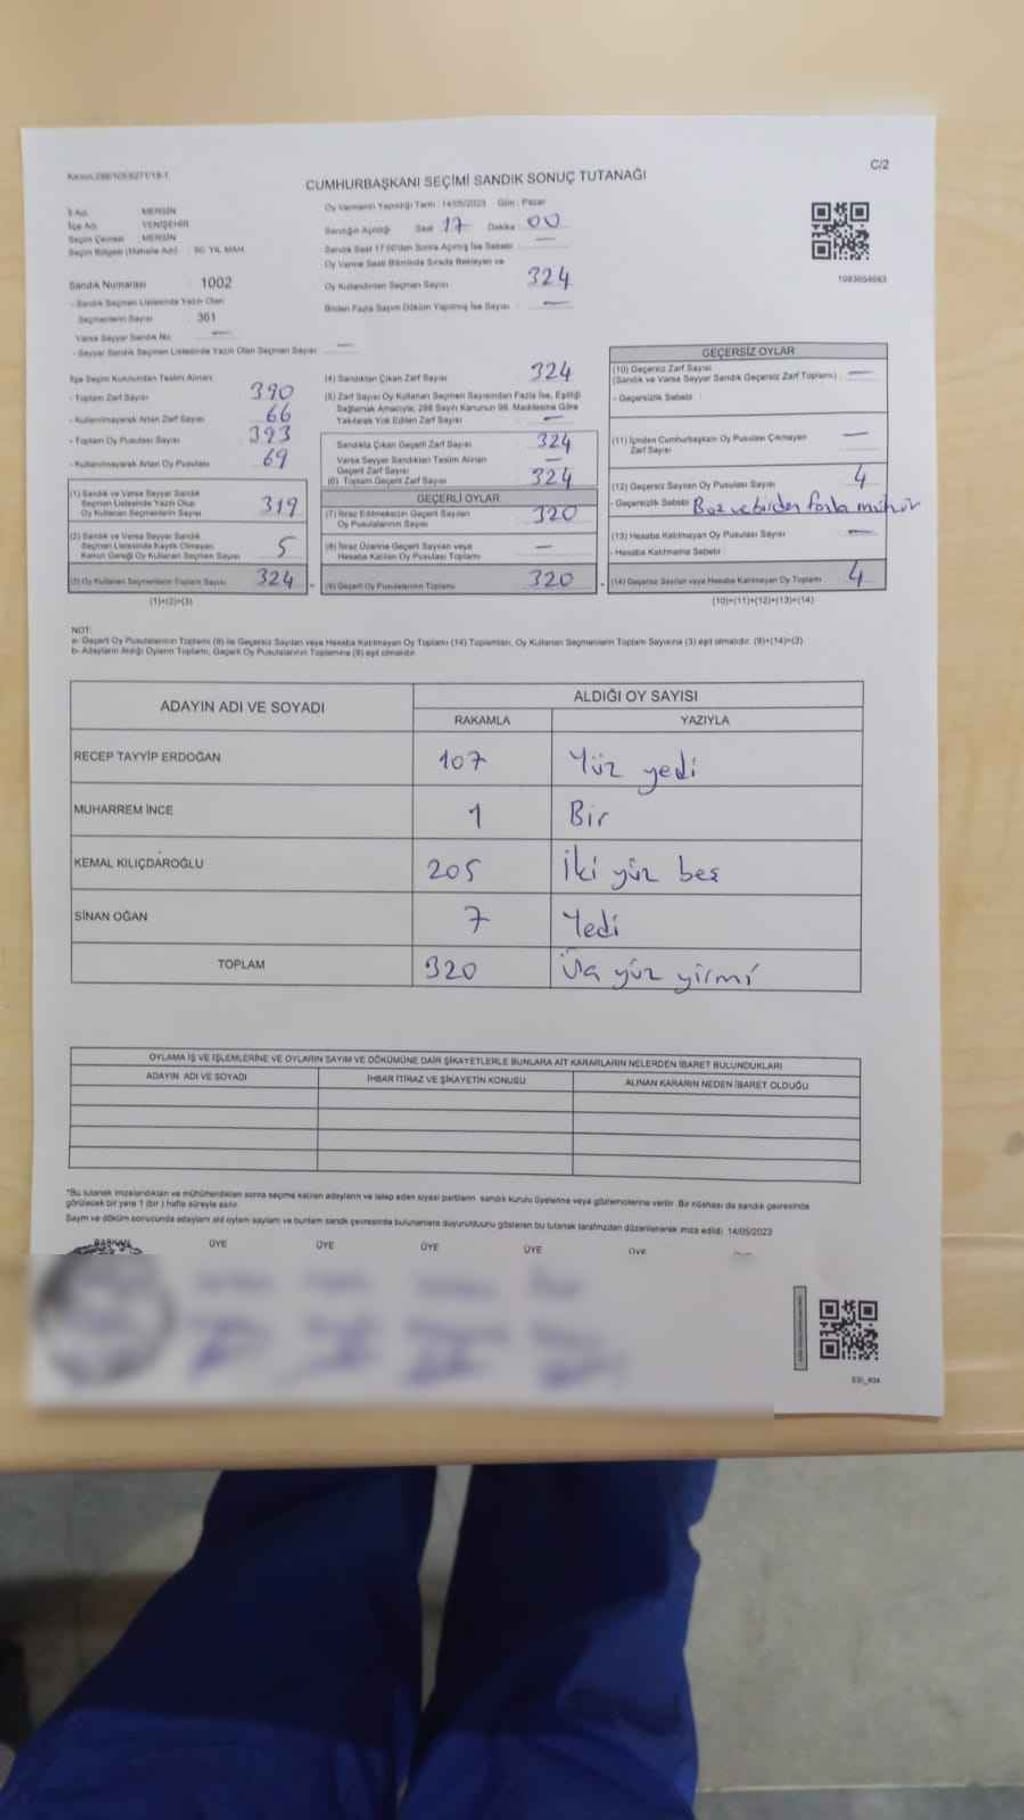 C/2
CUMHURBAŞKANI SEÇİMİ SANDIK SONUÇ TUTANAĞI
İl Adı MERSİN
İlçe Adı YENİŞEHİR
Seçim Çevresi MERSİN
Seçim Bölgesi (Mahalle Adı) 50. YIL MAH.
Sandık Numarası 1002
- Sandık Seçmen Listesinde Yazılı Olan
Seçmenlerin Sayısı 361
Varsa Seyyar Sandık No —
- Seyyar Sandık Seçmen Listesinde Yazılı Olan Seçmen Sayısı —
Oy Vermenin Yapıldığı Tarih : 14/05/2023 Gün : Pazar
Sandığın Açıldığı Saat 17 Dakika 00
Sandık Saat 17:00'den Sonra Açılmış İse Sebebi —
Oy Verme Saati Bitiminde Sırada Bekleyen ve
Oy Kullandırılan Seçmen Sayısı 324
Birden Fazla Sayım Döküm Yapılmış İse Sayısı —
1093654663
İlçe Seçim Kurulundan Teslim Alınan
- Toplam Zarf Sayısı 390
- Kullanılmayarak Artan Zarf Sayısı 66
- Toplam Oy Pusulası Sayısı 393
- Kullanılmayarak Artan Oy Pusulası 69
(1) Sandık ve Varsa Seyyar Sandık
Seçmen Listesinde Yazılı Olup
Oy Kullanan Seçmenlerin Sayısı 319
(2) Sandık ve Varsa Seyyar Sandık
Seçmen Listesinde Kayıtlı Olmayan
Kanun Gereği Oy Kullanan Seçmen Sayısı 5
(3) Oy Kullanan Seçmenlerin Toplam Sayısı 324
(1)+(2)=(3)
(4) Sandıktan Çıkan Zarf Sayısı 324
(5) Zarf Sayısı Oy Kullanan Seçmen Sayısından Fazla İse, Eşitliği
Sağlamak Amacıyla; 298 Sayılı Kanunun 98. Maddesine Göre
Yakılarak Yok Edilen Zarf Sayısı —
Sandıkta Çıkan Geçerli Zarf Sayısı 324
Varsa Seyyar Sandıktan Teslim Alınan
Geçerli Zarf Sayısı —
(6) Toplam Geçerli Zarf Sayısı 324
GEÇERLİ OYLAR
(7) İtiraz Edilmeksizin Geçerli Sayılan
Oy Pusulalarının Sayısı 320
(8) İtiraz Üzerine Geçerli Sayılan veya
Hesaba Katılan Oy Pusulası Toplamı —
(9) Geçerli Oy Pusulalarının Toplamı 320
GEÇERSİZ OYLAR
(10) Geçersiz Zarf Sayısı
(Sandık ve Varsa Seyyar Sandık Geçersiz Zarf Toplamı) —
- Geçersizlik Sebebi
(11) İçinden Cumhurbaşkanı Oy Pusulası Çıkmayan
Zarf Sayısı —
(12) Geçersiz Sayılan Oy Pusulası Sayısı 4
- Geçersizlik Sebebi Boş ve birden fazla mühür
(13) Hesaba Katılmayan Oy Pusulası Sayısı —
- Hesaba Katılmama Sebebi
(14) Geçersiz Sayılan veya Hesaba Katılmayan Oy Toplamı 4
(10)+(11)+(12)+(13)=(14)
NOT:
a- Geçerli Oy Pusulalarının Toplamı (9) ile Geçersiz Sayılan veya Hesaba Katılmayan Oy Toplamı (14) Toplamları, Oy Kullanan Seçmenlerin Toplam Sayısına (3) eşit olmalıdır. (9)+(14)=(3)
b- Adayların Aldığı Oyların Toplamı, Geçerli Oy Pusulalarının Toplamına (9) eşit olmalıdır.
ADAYIN ADI VE SOYADI
ALDIĞI OY SAYISI
RAKAMLA YAZIYLA
RECEP TAYYİP ERDOĞAN 107 Yüz yedi
MUHARREM İNCE 1 Bir
KEMAL KILIÇDAROĞLU 205 İki yüz beş
SİNAN OĞAN 7 Yedi
TOPLAM 320 Üç yüz yirmi
OYLAMA İŞ VE İŞLEMLERİNE VE OYLARIN SAYIM VE DÖKÜMÜNE DAİR ŞİKAYETLERLE BUNLARA AİT KARARLARIN NELERDEN İBARET BULUNDUKLARI
ADAYIN ADI VE SOYADI İHBAR İTİRAZ VE ŞİKAYETİN KONUSU ALINAN KARARIN NEDEN İBARET OLDUĞU
*Bu tutanak imzalandıktan ve mühürlendikten sonra seçime katılan adayların ve talep eden siyasi partilerin sandık kurulu üyelerine veya gözlemcilerine verilir. Bir nüshası da sandık çevresinde
görülecek bir yere 1 (bir) hafta süreyle asılır.
Sayım ve döküm sonucunda adayların aldığı oyların sayıları ve bunların sandık çevresinde bulunanlara duyurulduğunu gösteren bu tutanak tarafımızdan düzenlenerek imza edildi. 14/05/2023
BAŞKAN ÜYE ÜYE ÜYE ÜYE ÜYE